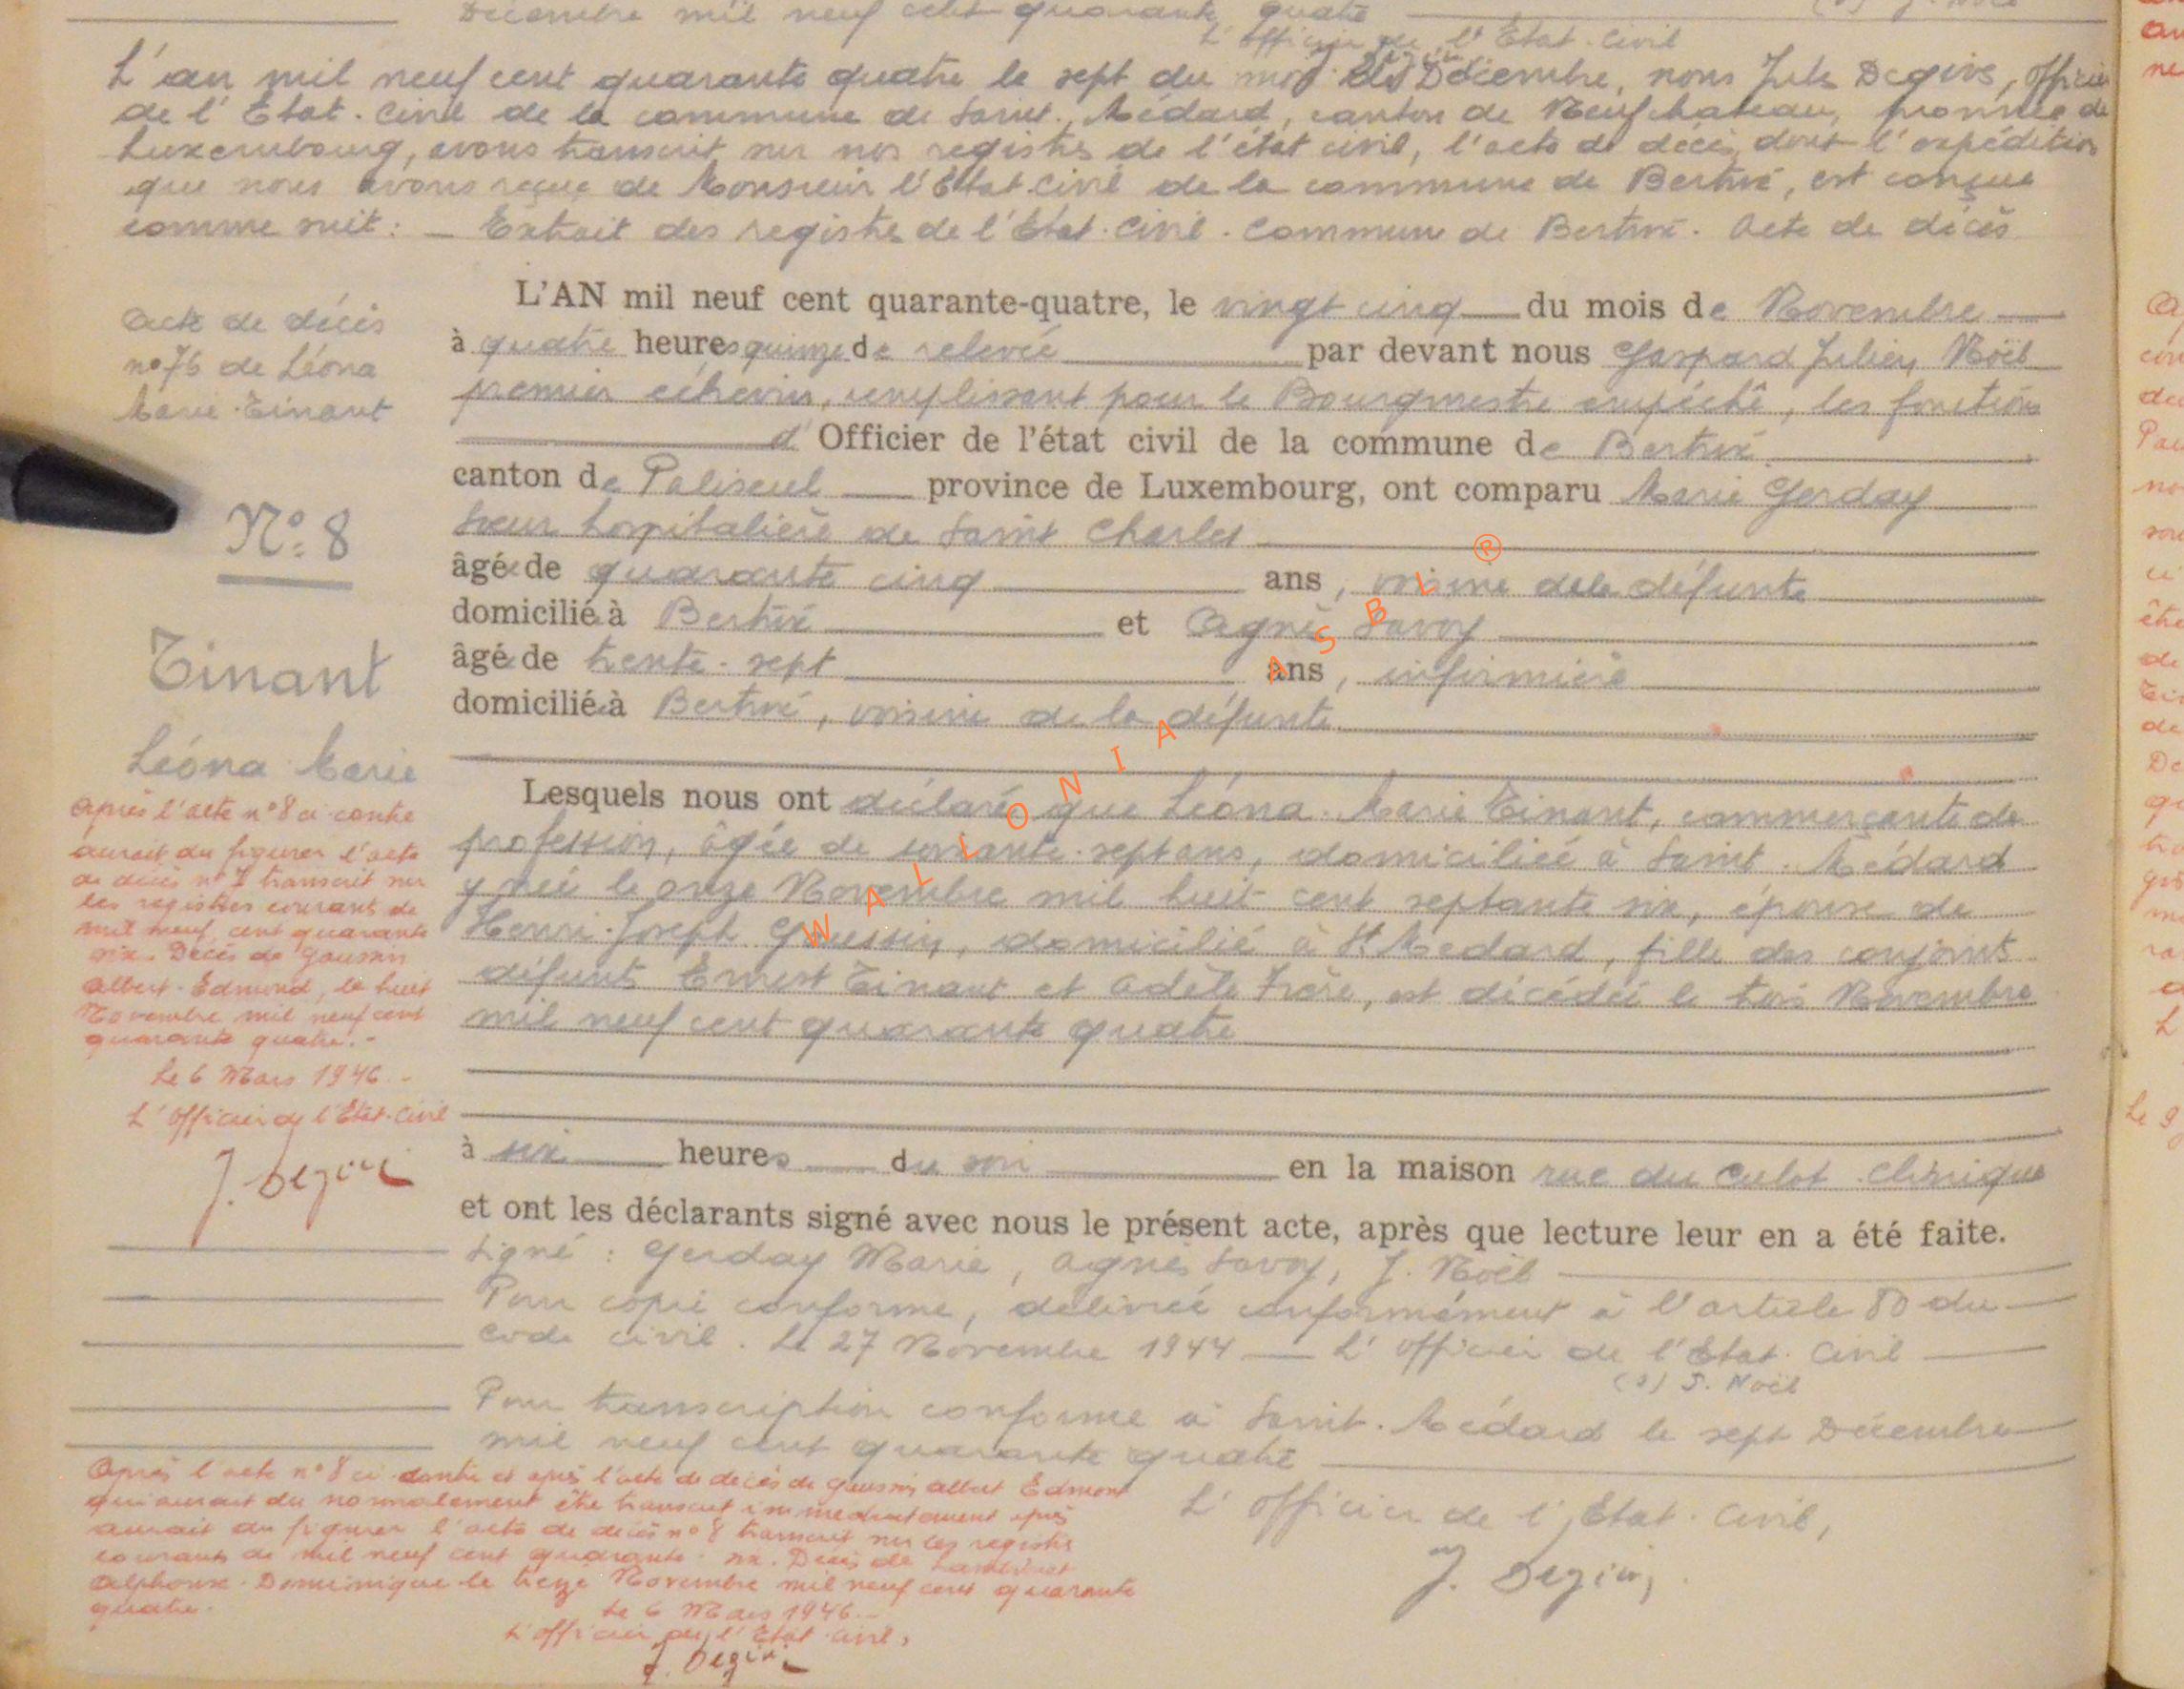 Décembre mil neuf cent quarante quatre
L'officier de l'Etat-Civil
L'an mil neuf cent quarante quatre le sept du mois de Décembre, nous Jules Degives, officier
de l'Etat-Civil de la commune de Saint-Médard, canton de Neufchateau, province de
Luxembourg, avons transcrit sur nos registres de l'état civil, l'acte de décès, dont l'expédition
que nous avons reçue de Monsieur l'Etat-Civil de la commune de Bertrix, est conçue
comme suit : — Extrait des registres de l'Etat-Civil. Commune de Bertrix. Acte de décès
Acte de décès
n°76 de Léona
Marie Tinant
N°: 8
Tinant
Léona Marie
L'AN mil neuf cent quarante-quatre, le vingt cinq du mois de Novembre
à quatre heures quinze de relevée par devant nous Gaspard Julien Noël
premier échevin, remplissant pour le Bourgmestre empêché, les fonctions
d'Officier de l'état civil de la commune de Bertrix
canton de Paliseul province de Luxembourg, ont comparu Marie Gerday
Soeur hospitalière de Saint Charles
âgée de quarante cinq ans, voisine de la défunte
domiciliée à Bertrix et Agnès Savoy
âgée de trente-sept ans, infirmière
domiciliée à Bertrix, voisine de la défunte
Lesquels nous ont déclaré que Léona Marie Tinant, commerçante de
profession, âgée de soixante-sept ans, domiciliée à Saint-Médard
y née le onze Novembre mil huit cent septante six, épouse de
Henri-Joseph Goussin, domicilié à St Médard, fille des conjoints
défunts Ernest Tinant et Adèle Frère, est décédée le trois Novembre
mil neuf cent quarante quatre
à six heures du soir en la maison rue du Culot. Clinique
et ont les déclarants signé avec nous le présent acte, après que lecture leur en a été faite.
Signé : Gerday Marie, Agnès Savoy, J. Noël
Pour copie conforme, délivrée conformément à l'article 80 du
Code civil. Le 27 Novembre 1944 — L'officier de l'Etat-Civil
(s) J. Noël
Pour transcription conforme à Saint-Médard le sept Décembre
mil neuf cent quarante quatre
L'officier de l'Etat-Civil,
J. Degives
Après l'acte n°8 ci-contre
aurait du figurer l'acte
de décès n°7 transcrit sur
les registres courants de
mil neuf cent quarante
six. Décès de Goussin
Albert-Edmond, le huit
Novembre mil neuf cent
quarante quatre.-
Le 6 Mars 1946.-
L'officier de l'Etat-Civil
J. Degives
Après l'acte n°8 ci-contre et après l'acte de décès de Goussin Albert Edmont
qui aurait du normalement être transcrit immédiatement après
aurait du figurer l'acte de décès n°8 transcrit sur les registres
courants de mil neuf cent quarante-six. Décès de
Alphonse-Dominique le treize Novembre mil neuf cent quarante
quatre.
Le 6 Mars 1946.-
L'officier de l'Etat-Civil,
J. Degives
WALLONIA ASBL ®